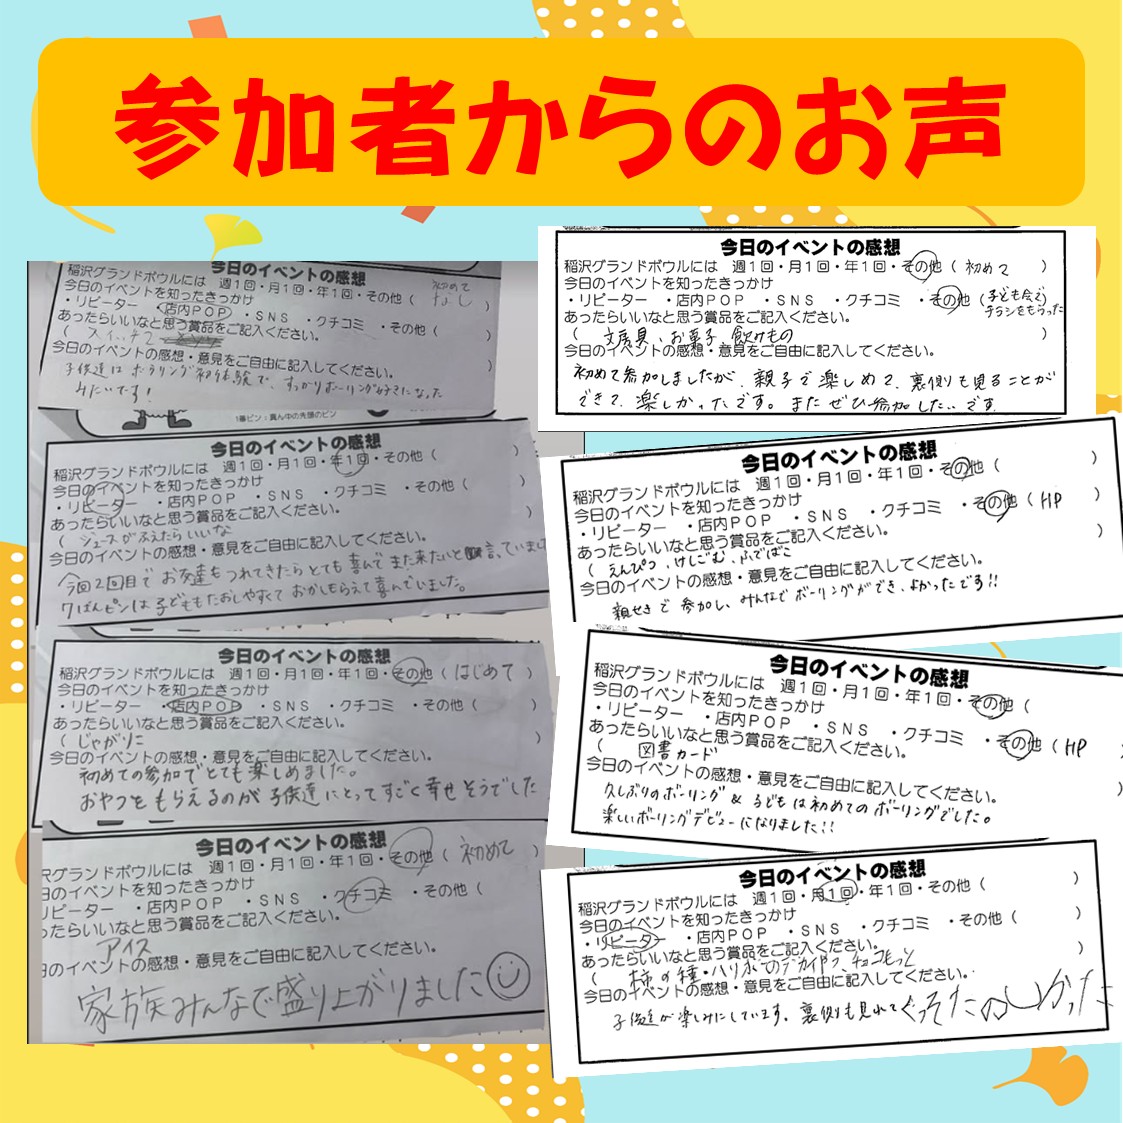 参加者からのお声
今日のイベントの感想
稲沢グランドボウルには 週1回・月1回・年1回・その他( 初めて なし )
今日のイベントを知ったきっかけ
・リピーター ・店内POP ・SNS ・クチコミ ・その他( )
あったらいいなと思う賞品をご記入ください。
( スイッチ2 )
今日のイベントの感想・意見をご自由に記入してください。
子供達はボウリング初体験で、すっかりボーリング好きになった
みたいです!
1番ピン:真ん中の先頭のピン
今日のイベントの感想
稲沢グランドボウルには 週1回・月1回・年1回・その他( )
今日のイベントを知ったきっかけ
・リピーター ・店内POP ・SNS ・クチコミ ・その他( )
あったらいいなと思う賞品をご記入ください。
( ジュースがふえたらいいな )
今日のイベントの感想・意見をご自由に記入してください。
今回2回目でお友達もつれてきたらとても喜んでまた来たいと言っていました
7ばんピンは子どももたおしやすくておかしもらえて喜んでいました。
今日のイベントの感想
稲沢グランドボウルには 週1回・月1回・年1回・その他( はじめて )
今日のイベントを知ったきっかけ
・リピーター ・店内POP ・SNS ・クチコミ ・その他( )
あったらいいなと思う賞品をご記入ください。
( じゃがりこ )
今日のイベントの感想・意見をご自由に記入してください。
初めての参加でとても楽しめました。
おやつをもらえるのが子供達にとってすごく幸せそうでした
今日のイベントの感想
沢グランドボウルには 週1回・月1回・年1回・その他( 初めて )
日のイベントを知ったきっかけ
リピーター ・店内POP ・SNS ・クチコミ ・その他( )
ったらいいなと思う賞品をご記入ください。
アイス
日のイベントの感想・意見をご自由に記入してください。
家族みんなで盛り上がりました
今日のイベントの感想
稲沢グランドボウルには 週1回・月1回・年1回・その他( 初めて )
今日のイベントを知ったきっかけ
・リピーター ・店内POP ・SNS ・クチコミ ・その他(子ども会でチラシをもらった
あったらいいなと思う賞品をご記入ください。
( 文房具、お菓子、飲みもの )
今日のイベントの感想・意見をご自由に記入してください。
初めて参加しましたが、親子で楽しめて、裏側も見ることが
できて、楽しかったです。またぜひ参加したいです
今日のイベントの感想
稲沢グランドボウルには 週1回・月1回・年1回・その他( )
今日のイベントを知ったきっかけ
・リピーター ・店内POP ・SNS ・クチコミ ・その他( HP )
あったらいいなと思う賞品をご記入ください。
( えんぴつ、けしごむ、ふでばこ )
今日のイベントの感想・意見をご自由に記入してください。
親せきで参加し、みんなでボーリングができ、よかったです!!
今日のイベントの感想
稲沢グランドボウルには 週1回・月1回・年1回・その他( )
今日のイベントを知ったきっかけ
・リピーター ・店内POP ・SNS ・クチコミ ・その他( HP )
あったらいいなと思う賞品をご記入ください。
( 図書カード )
今日のイベントの感想・意見をご自由に記入してください。
久しぶりのボーリング & 子どもは初めてのボーリングでした。
楽しいボーリングデビューになりました!!
今日のイベントの感想
稲沢グランドボウルには 週1回・月1回・年1回・その他( )
今日のイベントを知ったきっかけ
・リピーター ・店内POP ・SNS ・クチコミ ・その他( )
あったらいいなと思う賞品をご記入ください。
( 柿の種・ハリボーのデカイやつ チョコもっと )
今日のイベントの感想・意見をご自由に記入してください。
子供達が楽しみにしています。裏側も見れて たのしかった